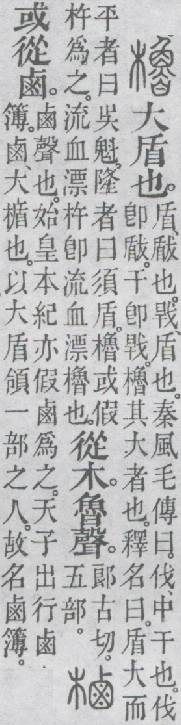 櫓
大盾也。
盾、瞂也。盾也。秦風毛傳曰。伐、中干也。伐
卽瞂。干卽。櫓其大者也。釋名曰。盾大而
平者曰吳魁。隆者曰須盾。櫓或假
杵爲之。流血漂杵卽流血漂櫓也。
從木。魯聲。
郞古切。
五部。
樐
或從鹵。
鹵聲也。始皇本紀亦假鹵爲之。天子出行鹵
簿。鹵、大楯也。以大盾領一部之人。故名鹵簿。